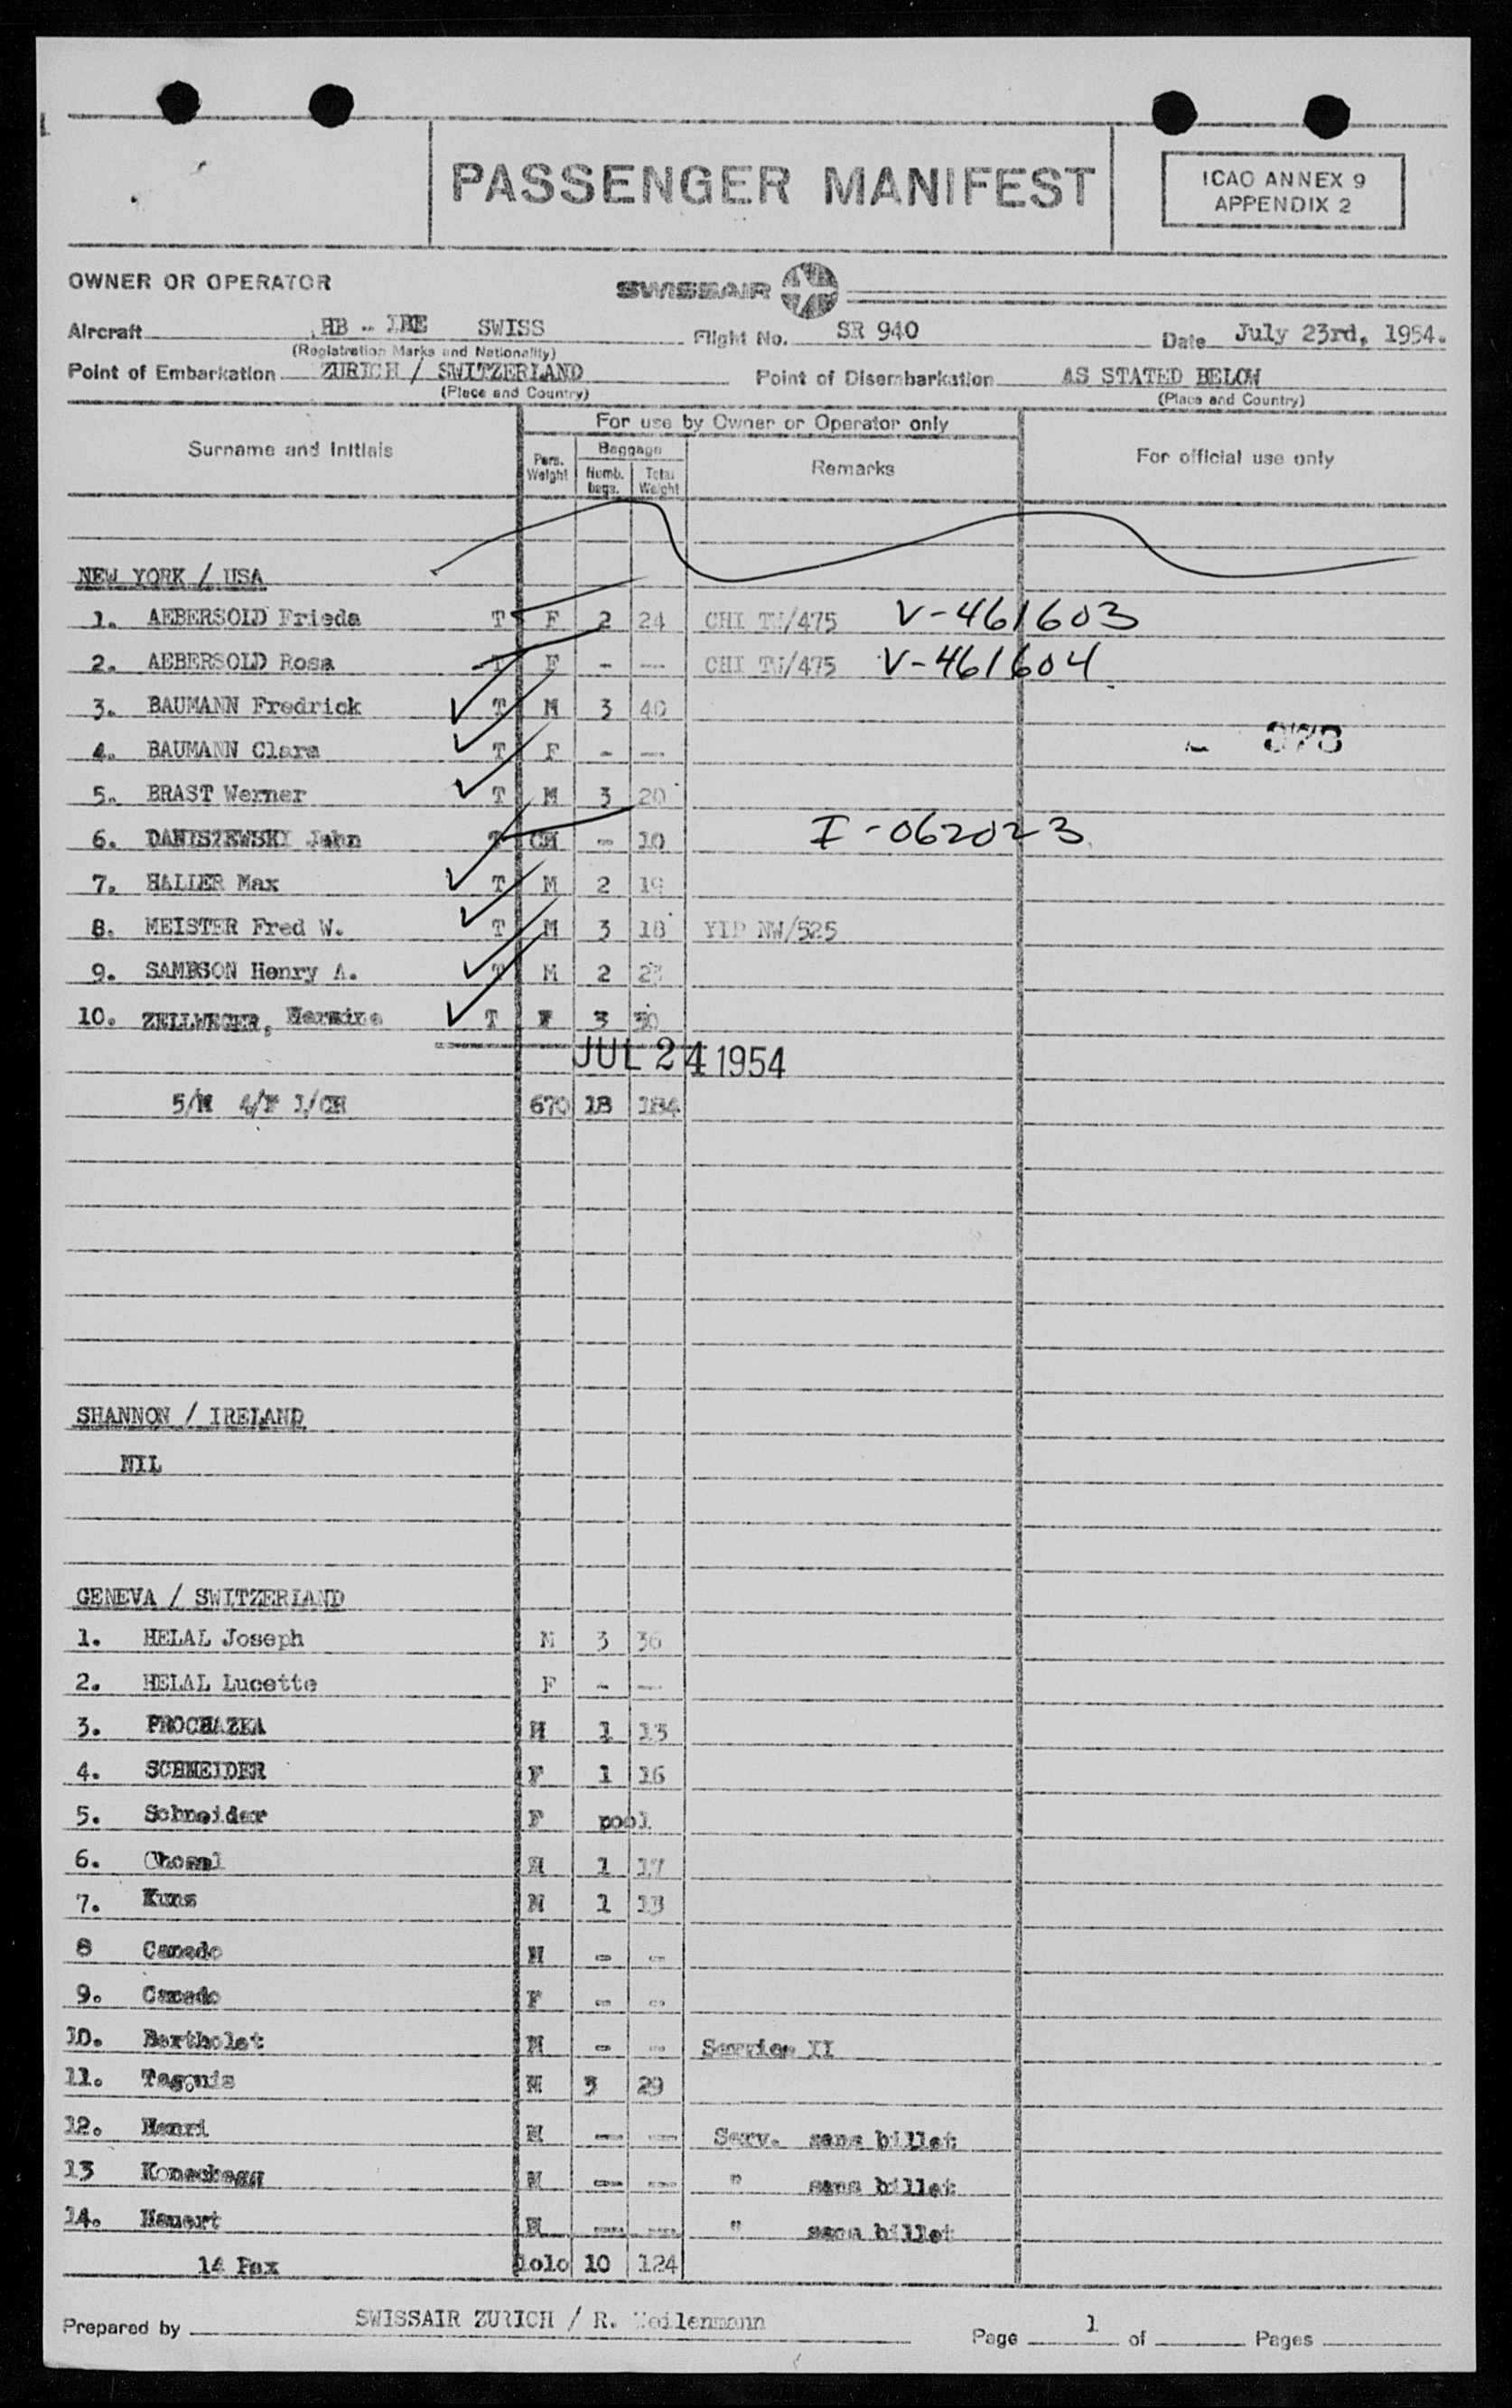 PASSENGER MANIFEST
ICAO ANNEX 9
APPENDIX 2
OWNER OR OPERATOR
SWISSAIR
Aircraft HB - SWISS Flight No. SR 940 Date July 23rd, 1954.
(Registration Marks and Nationality)
Point of Embarkation ZURICH / SWITZERLAND Point of Disembarkation AS STATED BELOW
(Place and Country) (Place and Country)
For use by Owner or Operator only
Surname and Initials Pers. Weight Baggage Numb. bags. Total Weight Remarks For official use only
NEW YORK / USA
1. AEBERSOLD Frieda T F 2 24 CHI /475 V-461603
2. AEBERSOLD Rosa T F - -- CHI /475 V-461604
3. BAUMANN Fredrick T M 3 40
4. BAUMANN Clara T F - --
5. BRAST Werner T M 3 20
6. DANISZEWSKI John T CH - 10 I-062023
7. HALLER Max T M 2 19
8. MEISTER Fred W. T M 3 18 YIP NW/525
9. Henry A. T M 2
10. ZELLWEGER, Hermine T F 3 30
JUL 24 1954
5/M 4/F 1/CH 670 18 184
SHANNON / IRELAND
NIL
GENEVA / SWITZERLAND
1. HELAL Joseph M 3 36
2. HELAL Lucette F - --
3. PROCHAZKA M 1 13
4. SCHNEIDER F 1 16
5. Schneider F pool
6. M 1 17
7. M 1 13
8 Canedo M - -
9. Canedo F - -
10. Bartholet M - - Service II
11. M 3 29
12. Henri M -- -- Serv. sans billet
13 M -- -- " sans billet
14. M -- -- " sans billet
14 Pax 1010 10 124
Prepared by SWISSAIR ZURICH / R. Weilenmann Page 1 of Pages